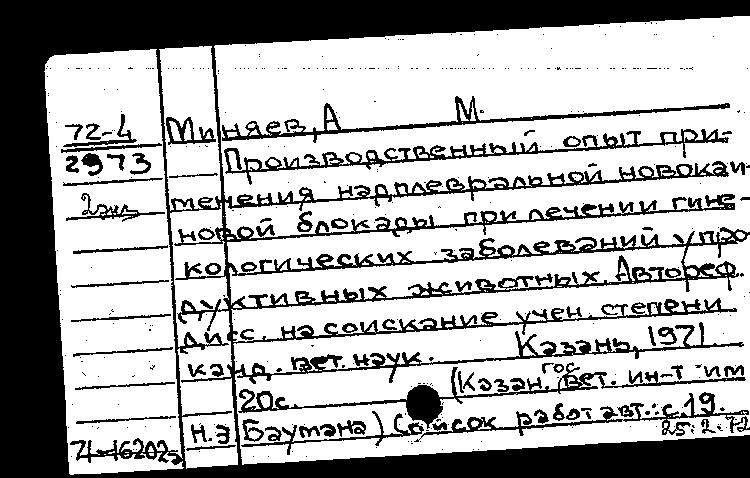 72-4 Миняев, А М.
2973 Производственный опыт при-
2 экз менения надплевральной новокаи-
новой блокады при лечении гине-
кологических заболеваний у про-
дуктивных животных. Автореф.
дисс. на соискание учен. степени
канд. вет. наук. Казань, 1971
20с. (Казан. гос вет. ин-т им
Н.Э Баумана) Список работ авт.: с 19.
71-16202э 25.2.72